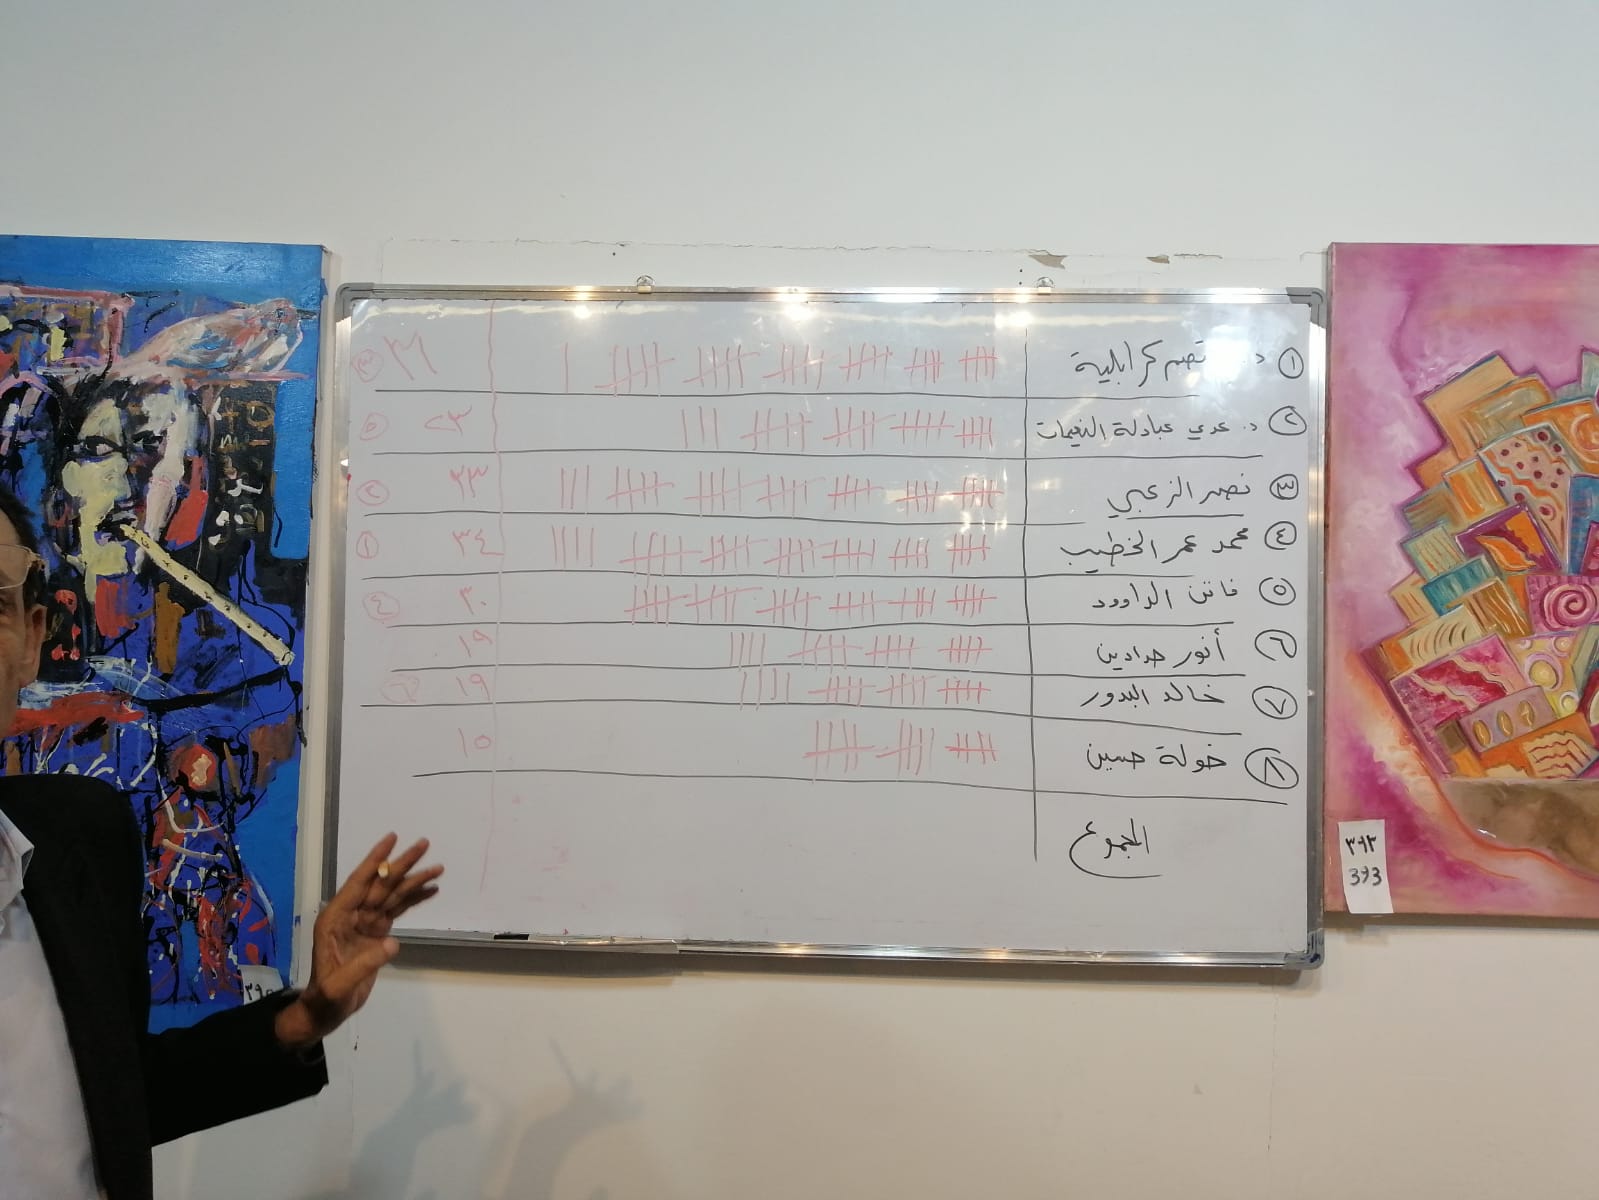 ١ د. تصم كرابلية ٣١ ٣
٢ د. عدي عبادلة النعيمات ٢٣ ٥
٣ نصر الزعبي ٣٣ ٢
٤ محمد عمر الخطيب ٣٤ ١
٥ فاتن الداوود ٣٠ ٤
٦ أنور حدادين ١٩
٧ خالد البدور ١٩ ٦
٨ خولة حسين ١٥
المجموع
٣٩٣
393